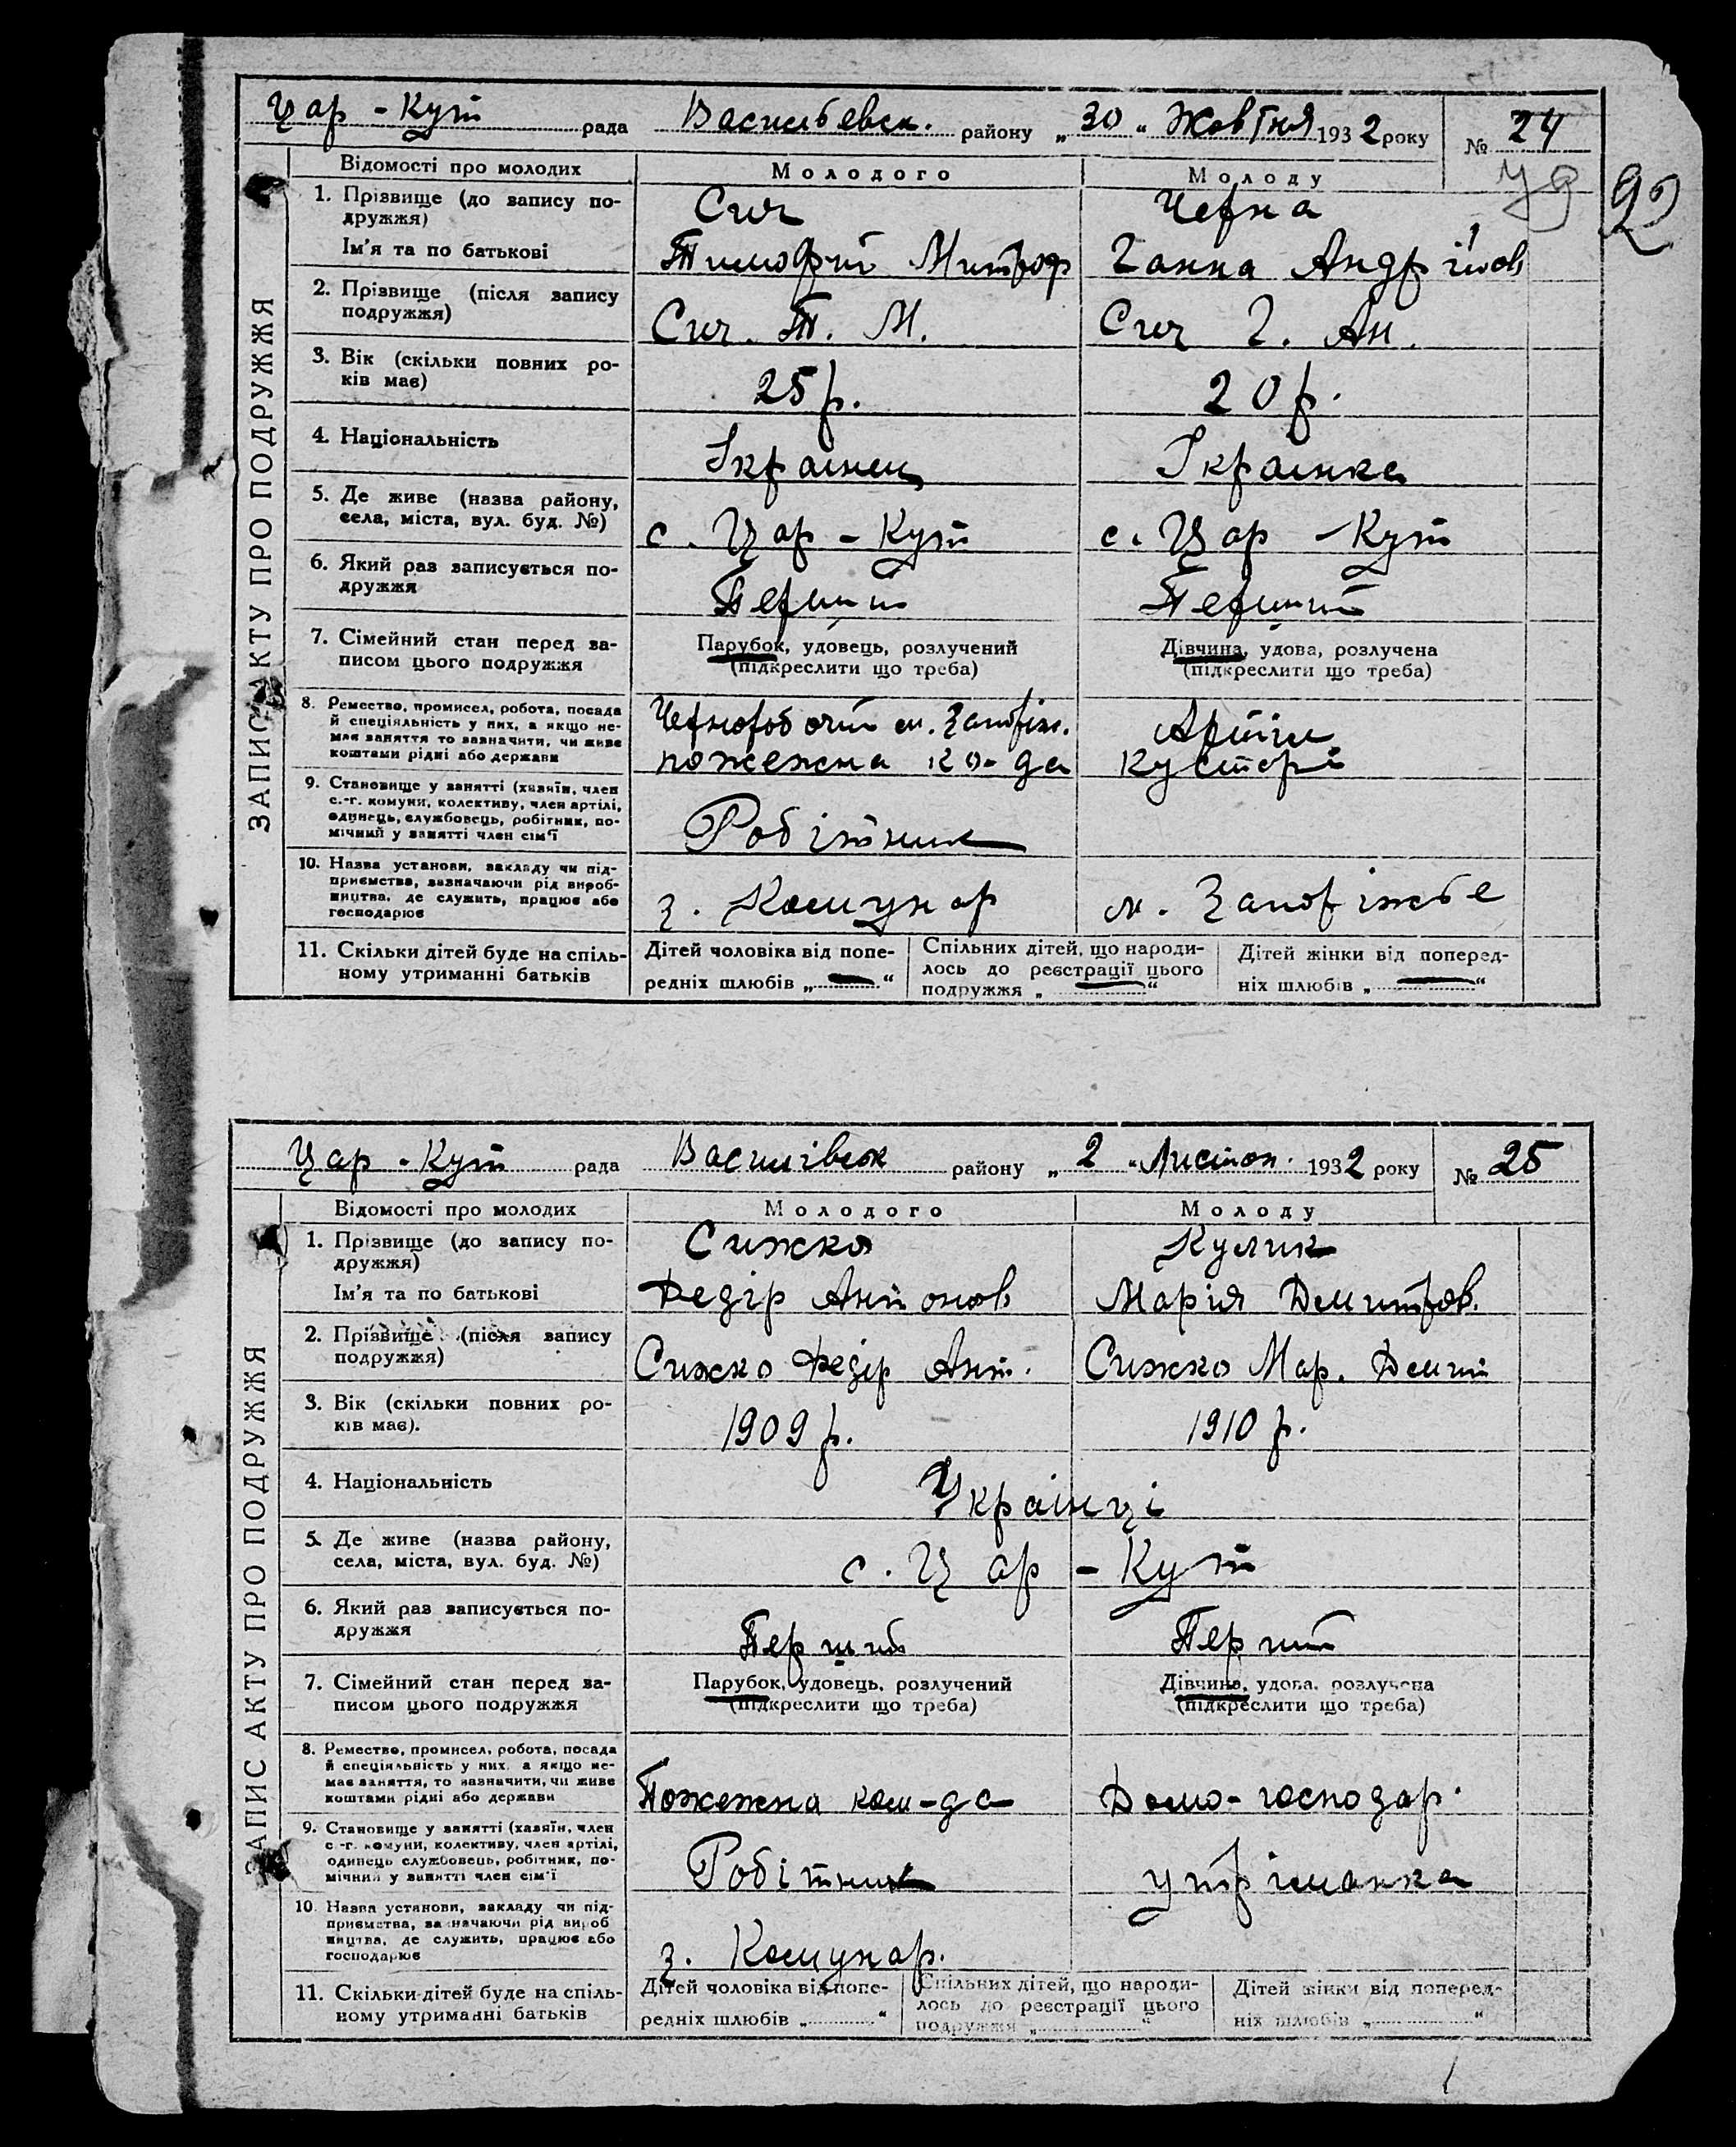 Цар - Кут рада Васильевск. району „ 30 “ Жовтня 1932 року № 24
92
Відомості про молодих Молодого Молоду
1. Прізвище (до запису по-
дружжя) Сич Черна
Ім'я та по батькові Тимофій Митроф Ганна Андрійов
2. Прізвище (після запису
подружжя) Сич. Т. М. Сич Г. Ан.
3. Вік (скільки повних ро-
ків має) 25 р. 20 р.
4. Національність Українец Українка
5. Де живе (назва району,
села, міста, вул. буд. №) с. Цар - Кут с. Цар - Кут
6. Який раз записується по-
дружжя Перший Перший
7. Сімейний стан перед за-
писом цього подружжя Парубок, удовець, розлучений
(підкреслити що треба) Дівчина, удова, розлучена
(підкреслити що треба)
8. Ремество, промисел, робота, посада
й спеціяльність у них, а якщо не-
має заняття то зазначити, чи живе
коштами рідні або держави Чернороб очий м. Запоріж.
пожежна ко-да Артіль
кустарі
9. Становище у занятті (хазяїн, член
с.-г. комуни, колективу, член артілі,
одинець, службовець, робітник, по-
мічний у занятті член сім'ї Робітник
10. Назва установи, закладу чи під-
приємства, зазначаючи рід вироб-
ництва, де служить, працює або
господарює з. Комунар м. Запоріжье
11. Скільки дітей буде на спіль-
ному утриманні батьків Дітей чоловіка від попе-
редніх шлюбів „ — “ Спільних дітей, що народи-
лось до реєстрації цього
подружжя „ — “ Дітей жінки від поперед-
ніх шлюбів „ — “
ЗАПИС АКТУ ПРО ПОДРУЖЖЯ
Цар - Кут рада Василівськ району „ 2 “ Листоп. 1932 року № 25
Відомості про молодих Молодого Молоду
1. Прізвище (до запису по-
дружжя) Сижко Кулик
Ім'я та по батькові Федір Антонов Марія Дмитров.
2. Прізвище (після запису
подружжя) Сижко Федір Ант. Сижко Мар. Дмит
3. Вік (скільки повних ро-
ків має). 1909 р. 1910 р.
4. Національність Українці
5. Де живе (назва району,
села, міста, вул. буд. №) с. Цар - Кут
6. Який раз записується по-
дружжя Перший Перший
7. Сімейний стан перед за-
писом цього подружжя Парубок, удовець, розлучений
(підкреслити що треба) Дівчина, удова, розлучена
(підкреслити що треба)
8. Ремество, промисел, робота, посада
й спеціяльність у них, а якщо не-
має заняття, то зазначити, чи живе
коштами рідні або держави Пожежна ком-да Домо-господар.
9. Становище у занятті (хазяїн, член
с.-г. комуни, колективу, член артілі,
одинець службовець, робітник, по-
мічний у занятті член сім'ї Робітник утріманка
10. Назва установи, закладу чи під-
приємства, зазначаючи рід вироб
ництва, де служить, працює або
господарює з. Комунар.
11. Скільки дітей буде на спіль-
ному утриманні батьків Дітей чоловіка від попе-
редніх шлюбів „ “ Спільних дітей, що народи-
лось до реєстрації цього
подружжя „ “ Дітей жінки від поперед-
ніх шлюбів „ “
ЗАПИС АКТУ ПРО ПОДРУЖЖЯ